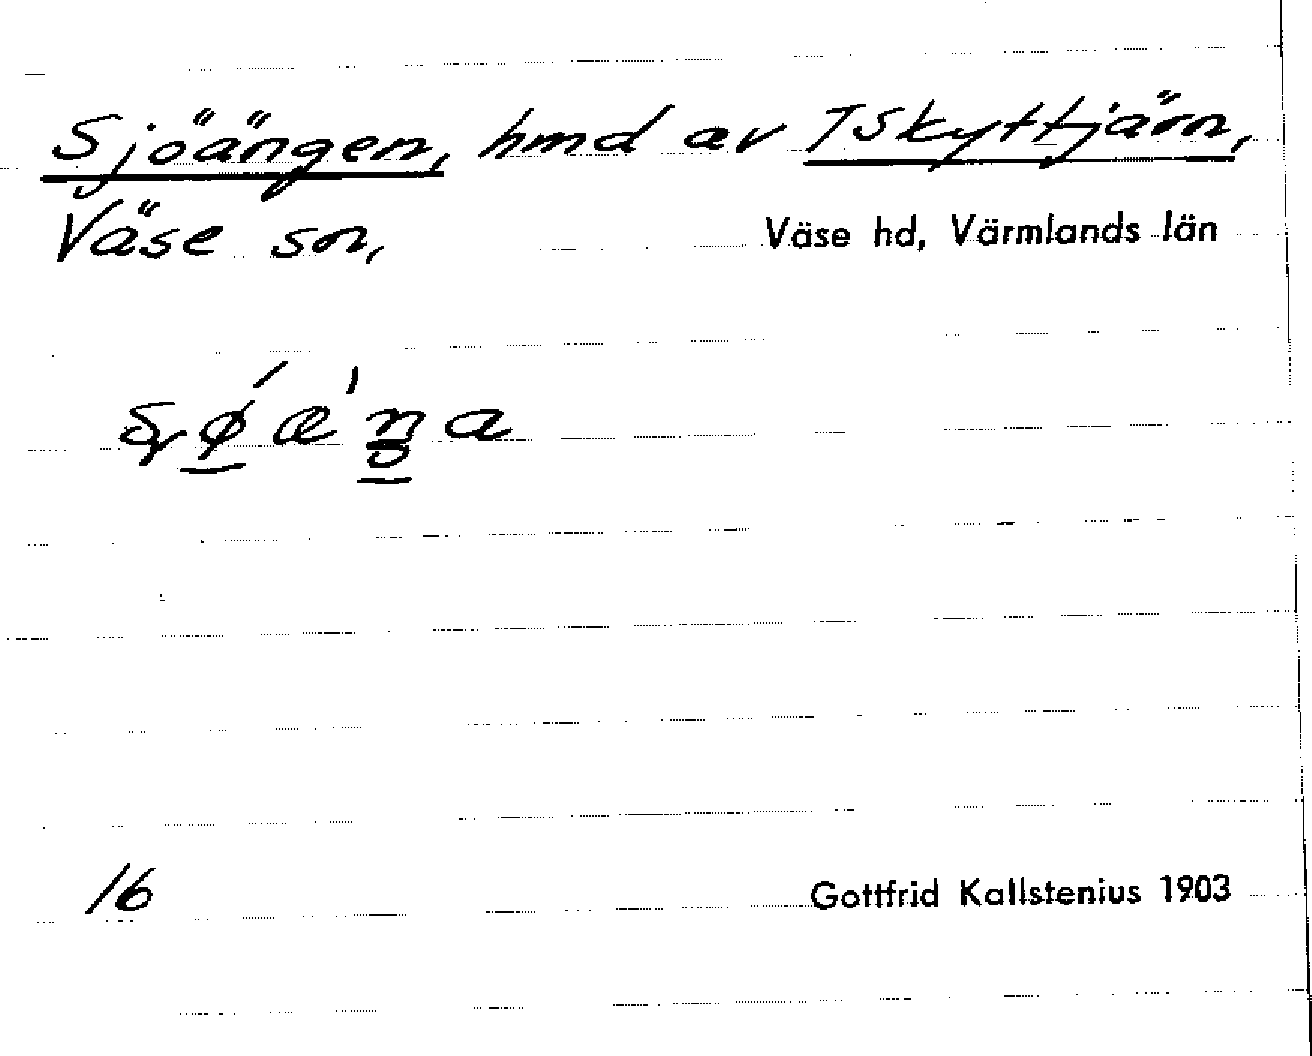 Sjöängen, hmd av Tskyttjärn,
Väse sn,
Väse hd, Värmlands län
16
Gottfrid Kallstenius 1903